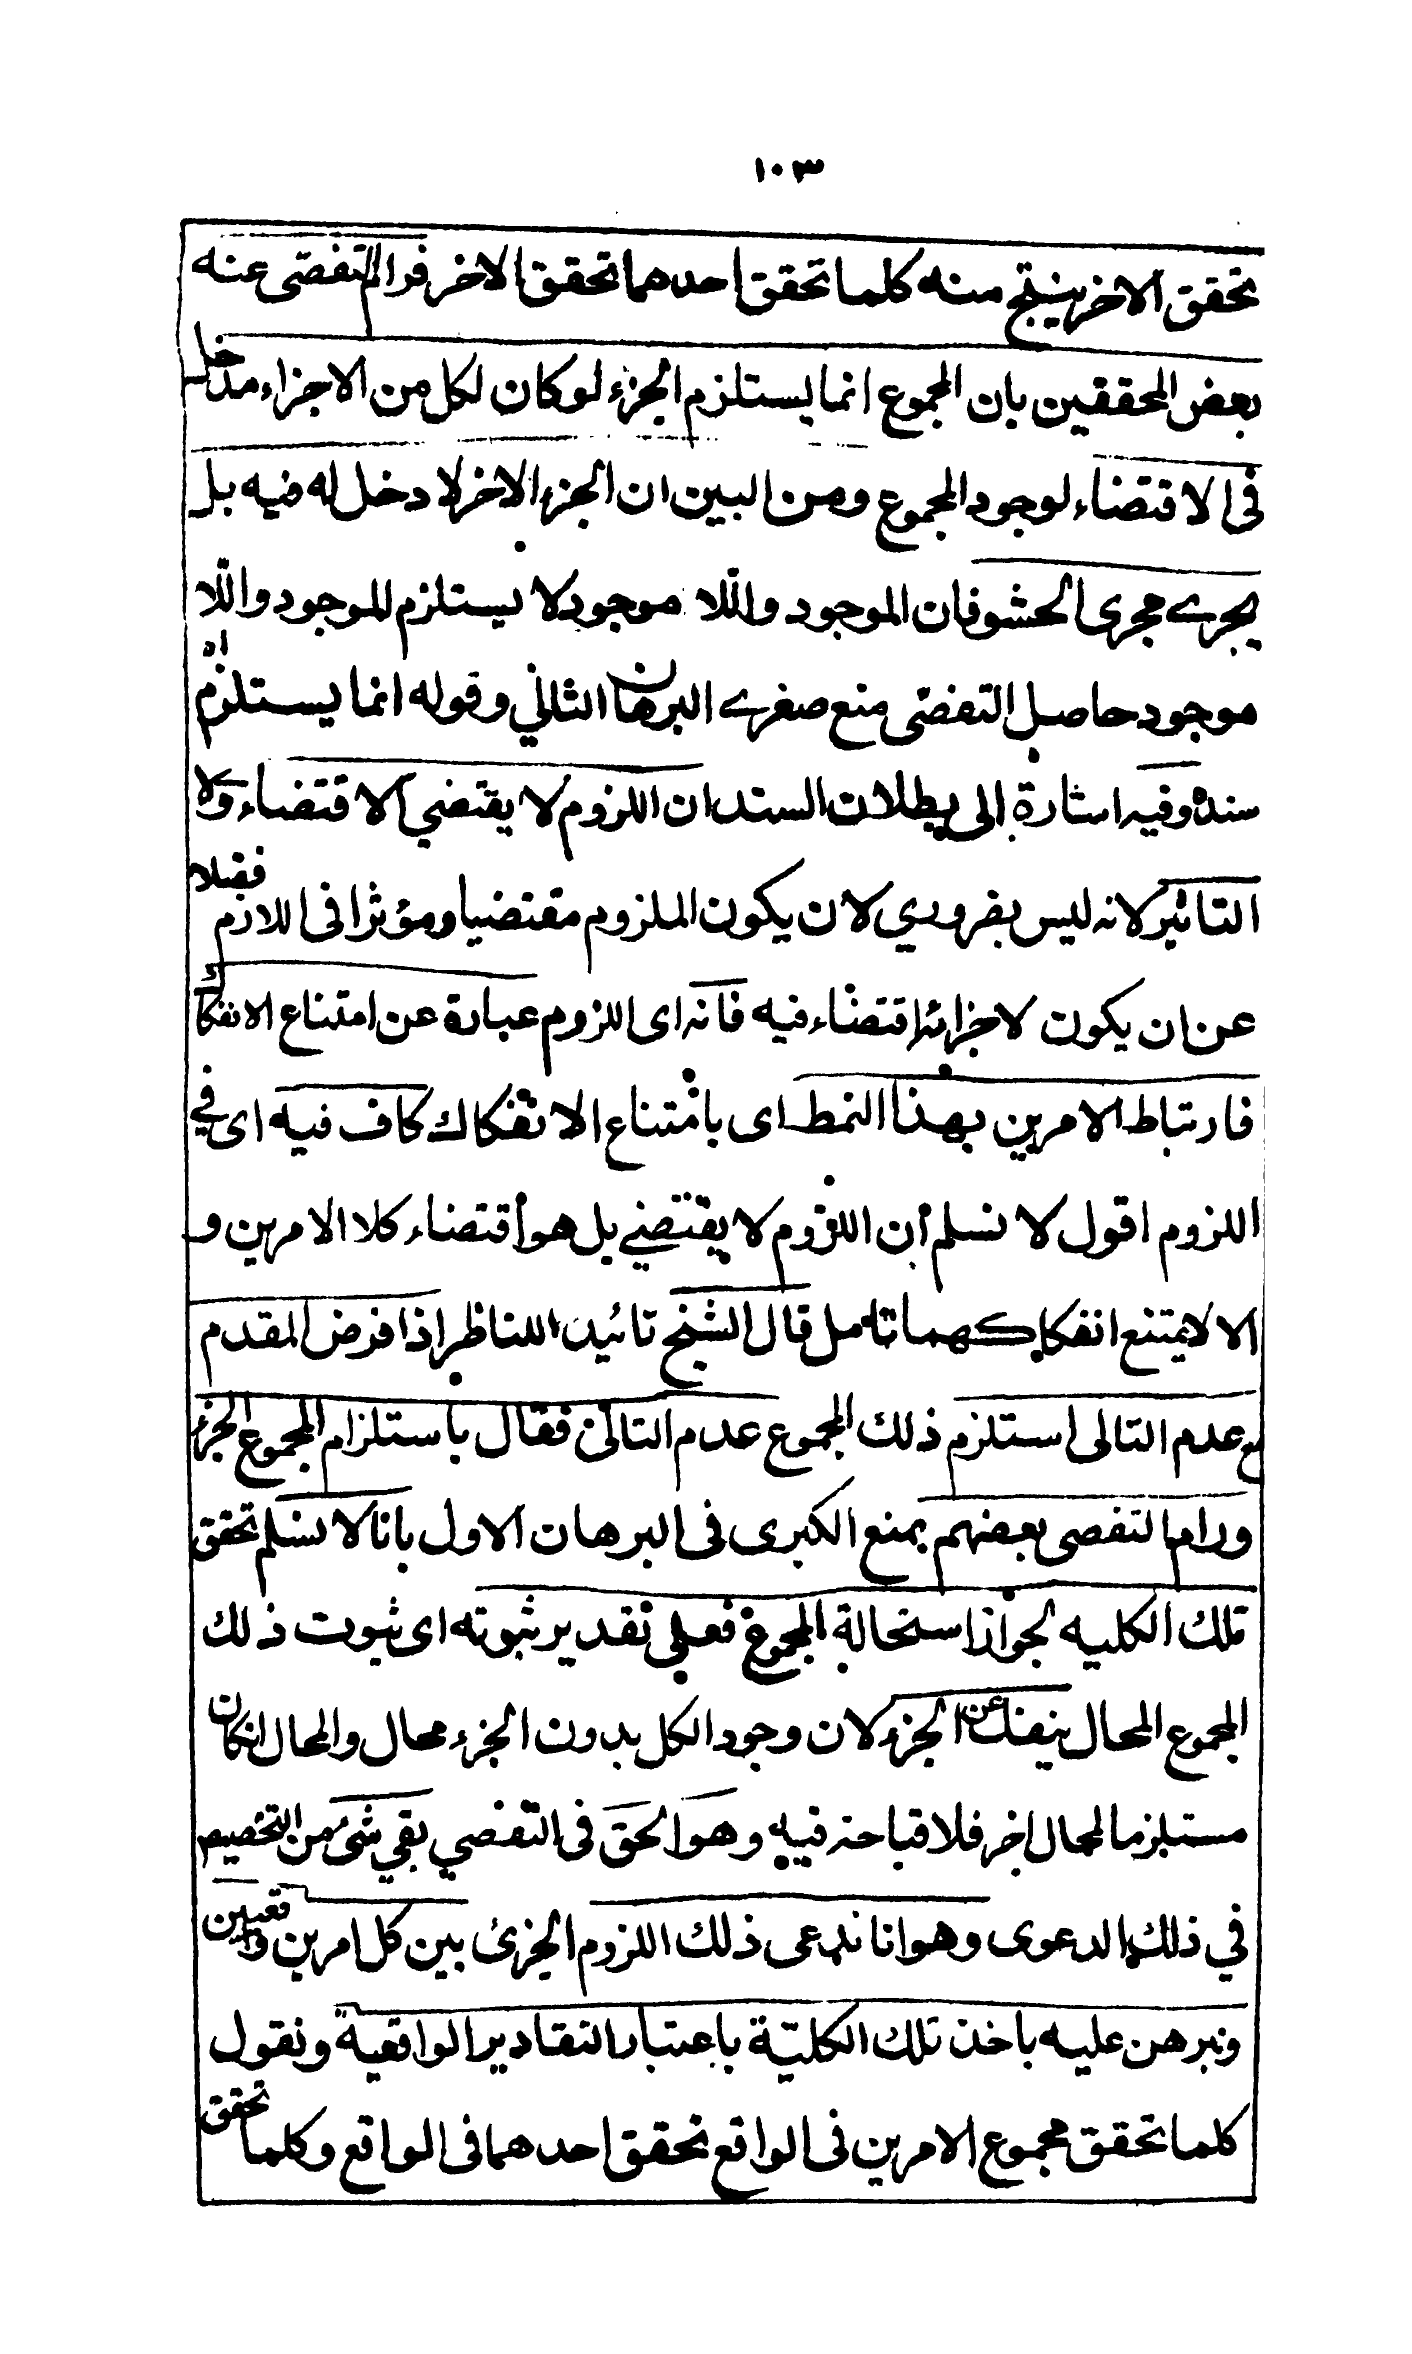 ١٠٣
تحقق الاخر ينتج منه كلما تحقق احدهما تحقق الاخر فرام التفصى عنه
بعض المحققين بان المجموع انما يستلزم الجزء لو كان لكل من الاجزاء مدخل
فى الاقتضاء لوجود المجموع ومن البين ان الجزء الاخر لا دخل له فيه بل
يجرے مجرى الحشو فان الموجود واللا موجود لا يستلزم للموجود واللا
موجود حاصل التفصى منع صغرے البرهان الثاني وقوله انما يستلزم اه
سنده وفيه اشارة الى بطلان السند ان اللزوم لا يقتضي الاقتضاء ولا
التاثير لانه ليس بضروري لان يكون الملزوم مقتضيا ومؤثرا فى اللازم فضلا
عن ان يكون لاجزائه اقتضاء فيه فانه اى اللزوم عبارة عن امتناع الانفكاك
فارتباط الامرين بهذا النمط اى بامتناع الانفكاك كاف فيه اى في
اللزوم اقول لا نسلم ان اللزوم لا يقتضے بل هو اقتضاء كلا الامرين و
الا لا يمتنع انفكاكهما تامل قال الشيخ تائيدا للناظر اذا فرض المقدم
مع عدم التالى استلزم ذلك المجموع عدم التالى فقال باستلزام المجموع الجزء
ورام التفصى بعضهم بمنع الكبرى فى البرهان الاول بانا لا نسلم تحقق
تلك الكليه لجواز استحالة المجموع فعلى تقدير ثبوته اى ثبوت ذلك
المجموع المحال ينفك عن الجزء لان وجود الكل بدون الجزء محال والمحال ان كان
مستلزما لمحال اخر فلا قباحة فيه وهو الحق فى التفصي بقي شئ من التخصيص
في ذلك الدعوى وهو انا ندعى ذلك اللزوم الجزئ بين كل امرين واقعيين
ونبرهن عليه باخذ تلك الكليّة باعتبار التقادير الواقعية ونقول
كلما تحقق مجموع الامرين فى الواقع تحقق احدهما فى الواقع وكلما تحقق